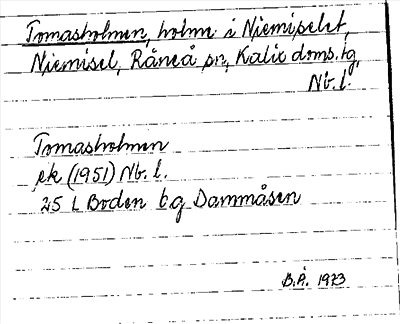 Tomasholmen, holme i Niemiselet,
Niemisel, Råneå sn, Kalix doms. tg,
Nb. l.
Tomasholmen
ek (1951) Nb. l.
25 L Boden bg Dammåsen
B.Å. 1973